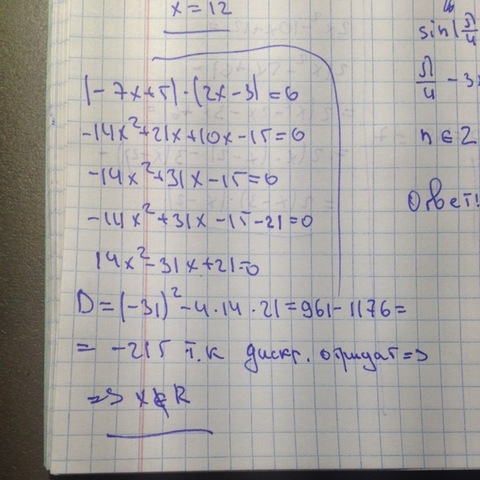 x = 12
(-7x+5)·(2x-3)=6
-14x²+21x+10x-15=6
-14x²+31x-15=6
-14x²+31x-15-21=0
14x²-31x+21=0
D=(-31)²-4·14·21=961-1176=
= -215 т.к дискр. отрицат =>
=> x∉R
sin(π/4
π/4 - 3x
n ∈ Z
Ответ: